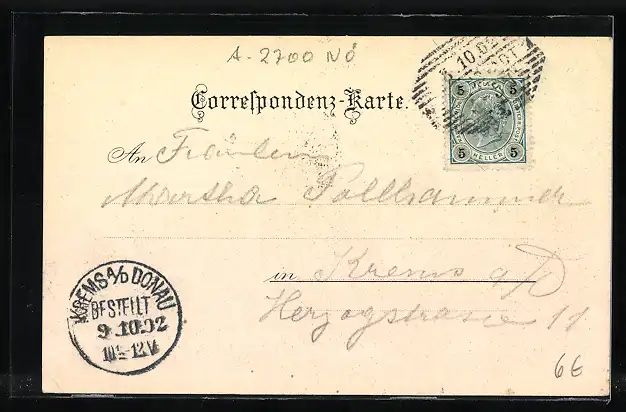 A-2700 NÖ
10.02
Correspondenz-Karte.
5 5
HELLER
5 5
An Fräulein
Martha Pollhammer
in Krems a/D
Herzogstrasse 11
KREMS A/D DONAU
BESTELLT
9.10.02
10½-12.V
6€